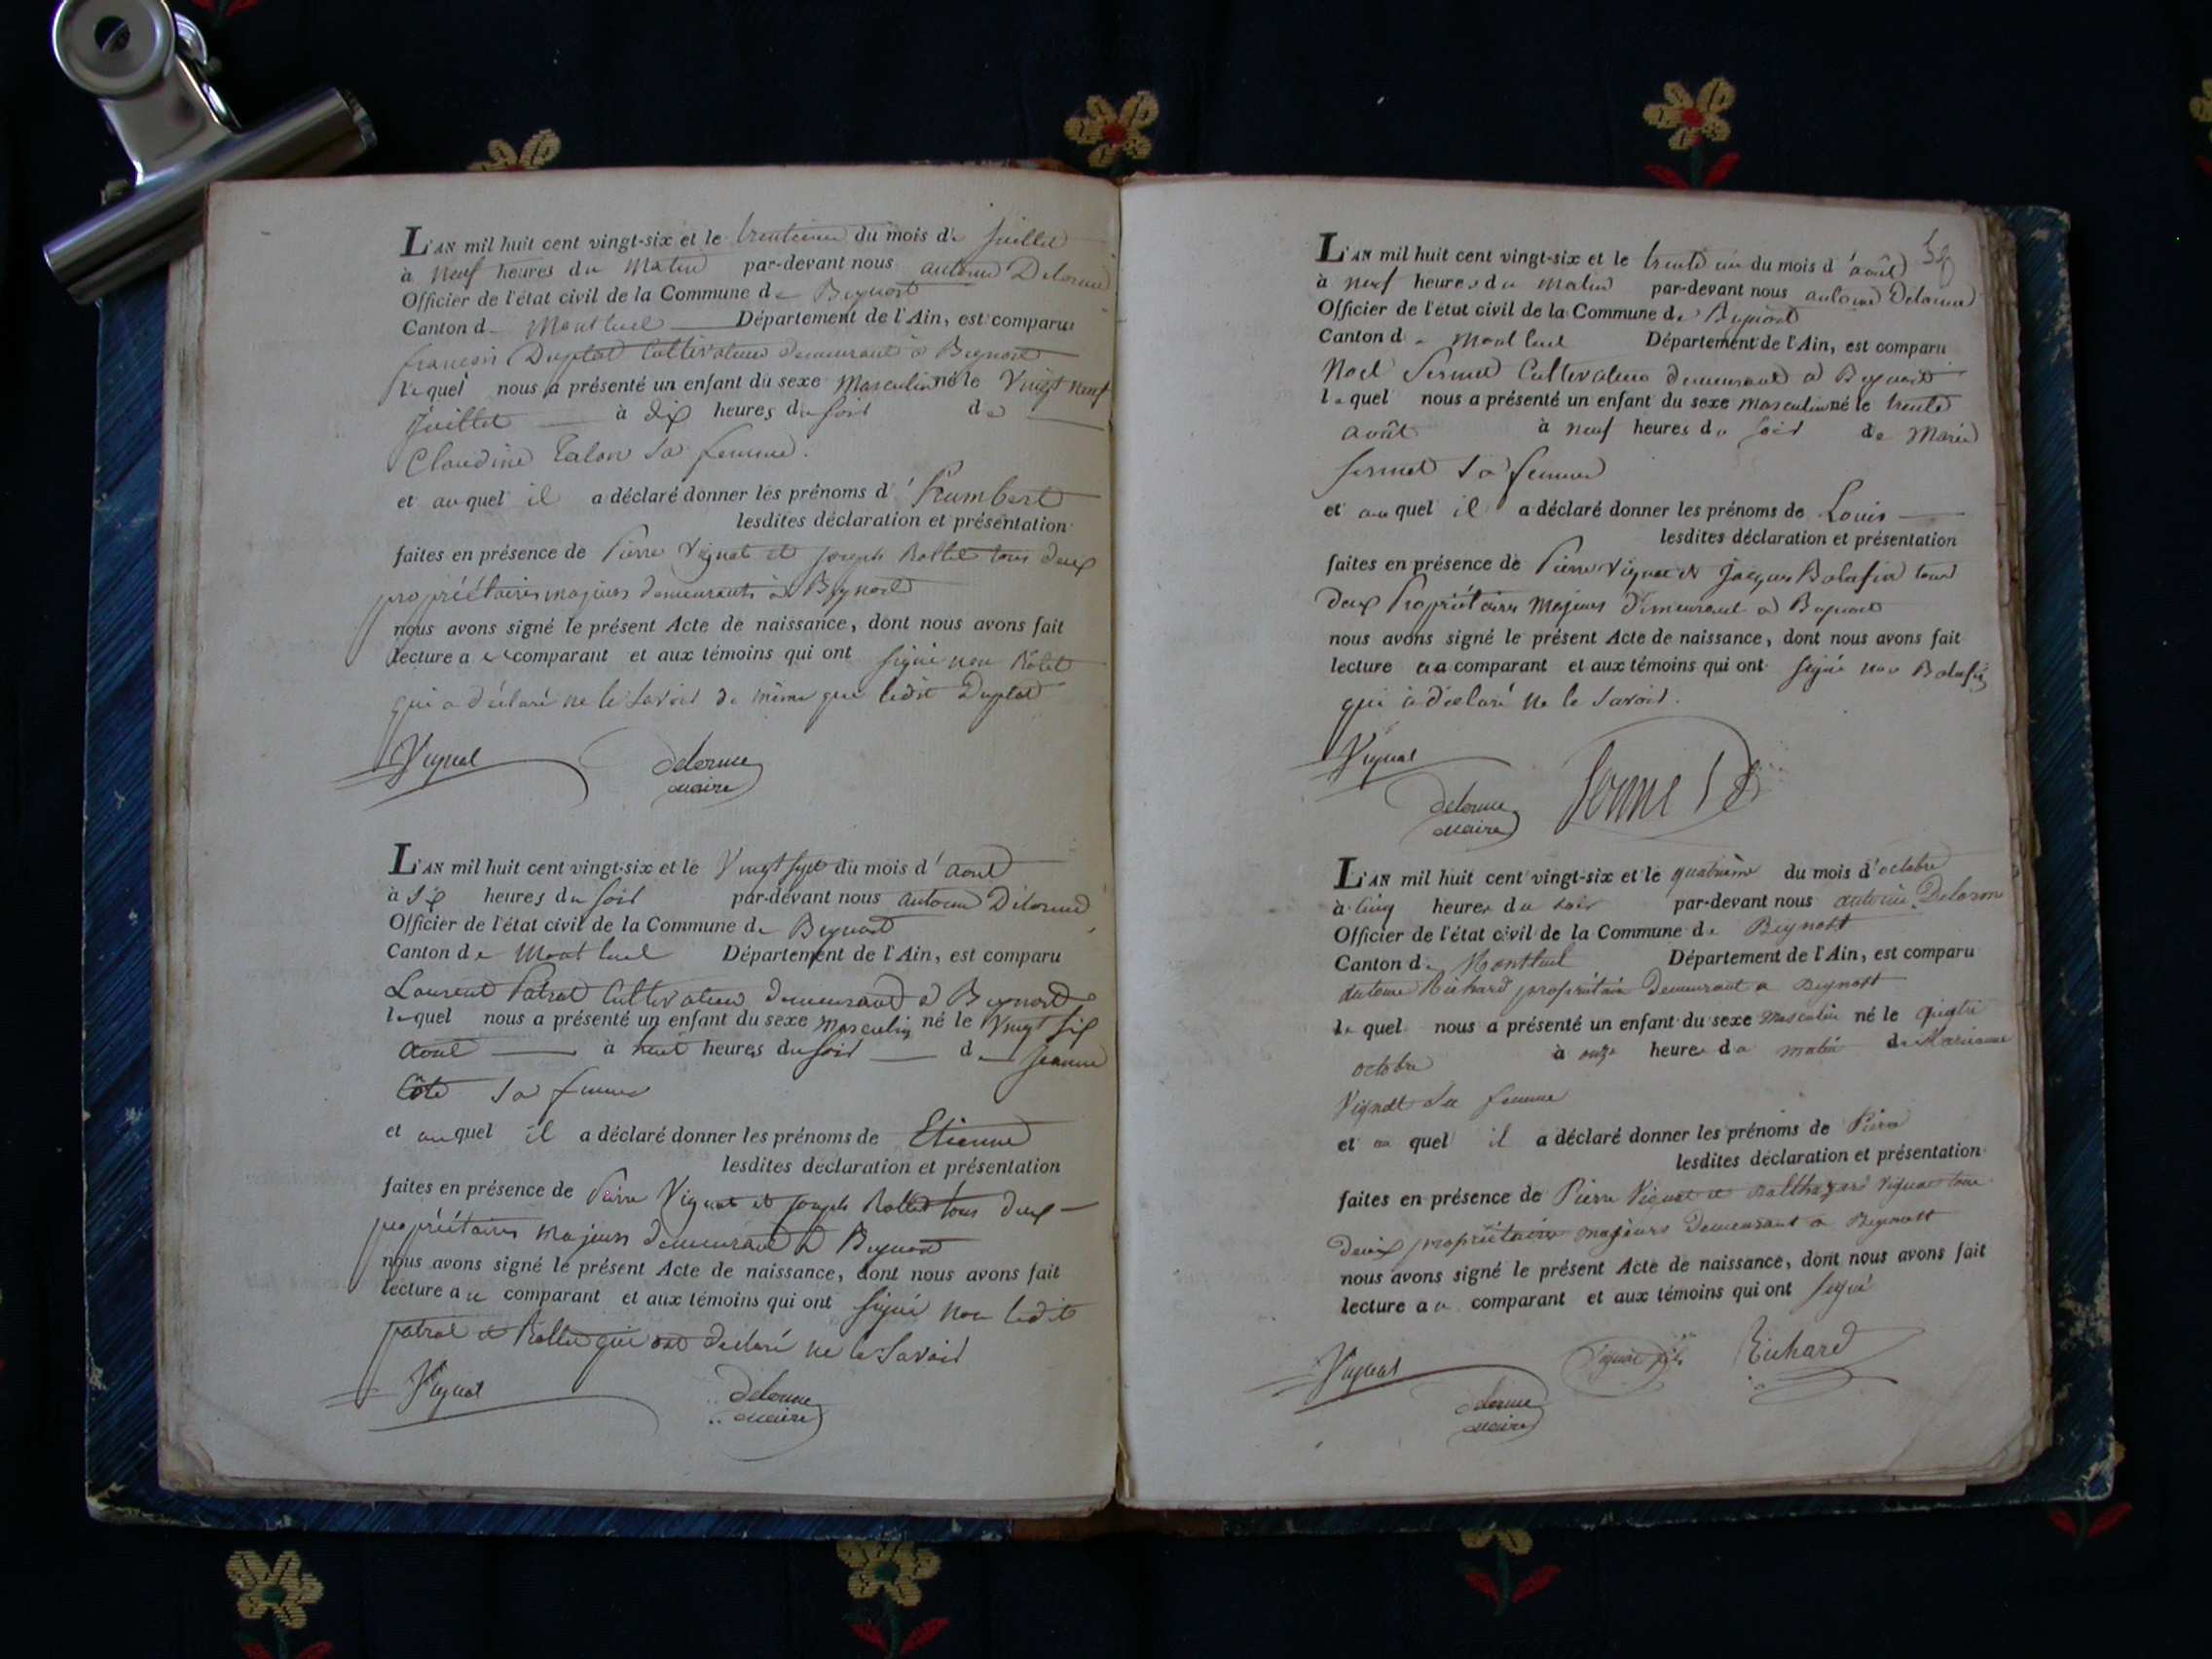 L'AN mil huit cent vingt-six et le trentieme du mois de juillet
à neuf heures du matin par-devant nous antoine Delorme
Officier de l'état civil de la Commune de Beynost
Canton de Montluel Département de l'Ain, est comparu
françois Duplat Cultivateur demeurant à Beynost
lequel nous a présenté un enfant du sexe masculin né le Vingt neuf
Juillet à dix heures du soir de
Claudine Talon sa femme.
et auquel il a déclaré donner les prénoms d'humbert
lesdites déclaration et présentation
faites en présence de Pierre Vignat et joseph Rollet tous deux
propriétaires majeurs demeurants à Beynost
nous avons signé le présent Acte de naissance, dont nous avons fait
lecture au comparant et aux témoins qui ont signé non Rolet
qui a déclaré ne le savoir de même que ledit Duplat
Vignat delorme
maire
L'AN mil huit cent vingt-six et le Vingt sept du mois d'aout
à six heures du soir par-devant nous antoine Delorme
Officier de l'état civil de la Commune de Beynost
Canton de Montluel Département de l'Ain, est comparu
Laurent Patrat Cultivateur demeurant à Beynost
lequel nous a présenté un enfant du sexe masculin né le Vingt six
Aout à huit heures du soir de Jeanne
Côte sa femme
et auquel il a déclaré donner les prénoms de Etienne
lesdites déclaration et présentation
faites en présence de Pierre Vignat et joseph Rollet tous deux
propriétaires majeurs demeurant à Beynost
nous avons signé le présent Acte de naissance, dont nous avons fait
lecture au comparant et aux témoins qui ont signé non ledit
patrat et Rollet qui ont déclaré ne le savoir
Vignat delorme
maire
L'AN mil huit cent vingt-six et le trente un du mois d'août
à neuf heures du matin par-devant nous antoine Delorme
Officier de l'état civil de la Commune de Beynost
Canton de Montluel Département de l'Ain, est comparu
Noel Sermet Cultivateur demeurant à Beynost
lequel nous a présenté un enfant du sexe masculin né le trente
août à neuf heures du soir de Marie
sermet sa femme
et auquel il a déclaré donner les prénoms de Louis
lesdites déclaration et présentation
faites en présence de Pierre Vignat et Jacques Bolafin tous
deux Propriétaires Majeurs demeurant à Beynost
nous avons signé le présent Acte de naissance, dont nous avons fait
lecture au comparant et aux témoins qui ont signé non Bolafin
qui a déclaré ne le savoir.
Vignat
delorme
maire
L'AN mil huit cent vingt-six et le quatrième du mois d'octobre
à cinq heures du soir par-devant nous antoine Delorme
Officier de l'état civil de la Commune de Beynost
Canton de Montluel Département de l'Ain, est comparu
antoine Richard propriétaire demeurant a Beynost
lequel nous a présenté un enfant du sexe masculin né le quatre
octobre à onze heures du matin de Marianne
Vignat sa femme
et au quel il a déclaré donner les prénoms de Pierre
lesdites déclaration et présentation
faites en présence de Pierre Vignat et Balthazard Vignat tous
deux propriétaires majeurs demeurant a Beynost
nous avons signé le présent Acte de naissance, dont nous avons fait
lecture au comparant et aux témoins qui ont signé
Vignat Vignat fils Richard
delorme
maire